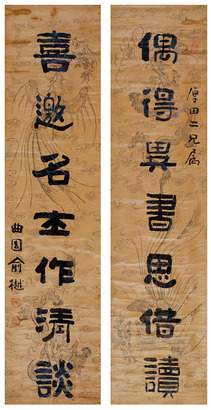 偶得異書思借讀
厚田二兄属
喜邀名士作清談
曲園俞樾